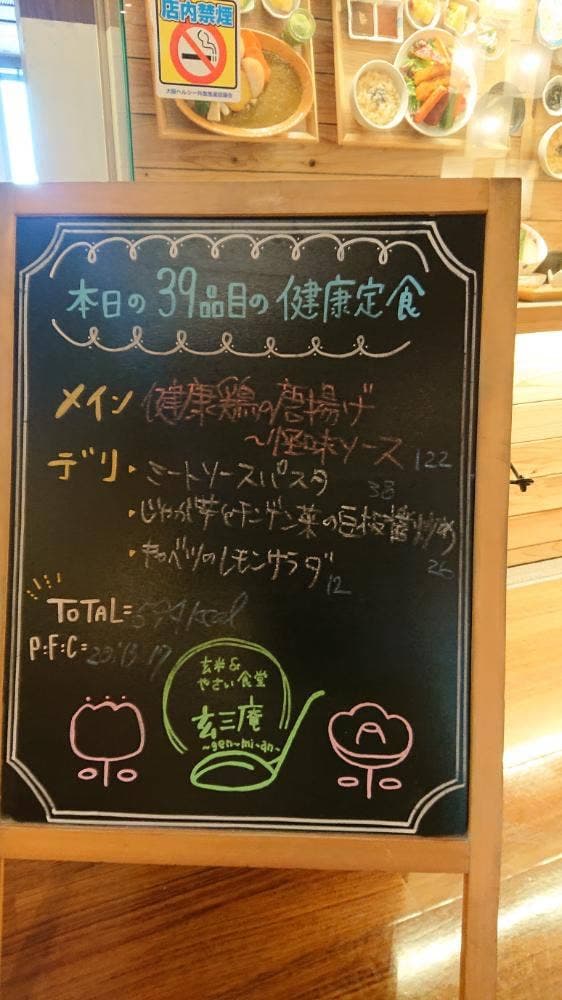 店内禁煙
本日の39品目の健康定食
メイン 健康鶏の唐揚げ
～怪味ソース 122
デリ・ミートソースパスタ
38
・じゃが芋とチンゲン菜の豆板醤炒め
26
・キャベツのレモンサラダ
12
TOTAL=594kcal
P:F:C=20:13:
玄米&
やさい食堂
玄三庵
～gen～mi～an～